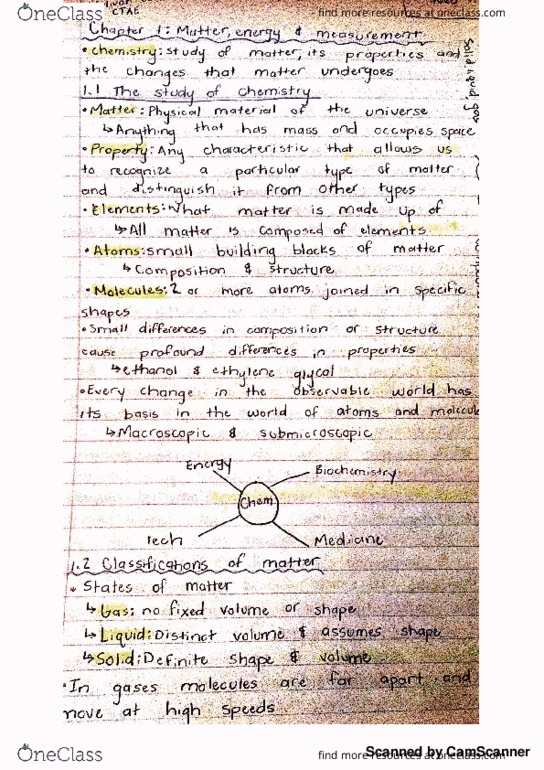 CTAE
OneClass
find more resources at oneclass.com
Chapter 1: Matter, energy & measurement
• chemistry: study of matter, its properties and
the changes that matter undergoes
solid, liquid, gas
1.1 The study of chemistry
• Matter: Physical material of the universe
↳ Anything that has mass and occupies space
• Property: Any characteristic that allows us
to recognize a particular type of matter
and distinguish it from other types
• Elements: What matter is made up of
↳ All matter is composed of elements
• Atoms: small building blocks of matter
↳ Composition & structure
• Molecules: 2 or more atoms joined in specific
shapes
• Small differences in composition or structure
cause profound differences in properties
↳ ethanol & ethylene glycol
• Every change in the observable world has
its basis in the world of atoms and molecule
↳ Macroscopic & submicroscopic
Energy
Biochemistry
Chem
Tech
Medicine
1.2 Classifications of matter
• States of matter
↳ Gas: no fixed volume or shape
↳ Liquid: Distinct volume & assumes shape
↳ Solid: Definite shape & volume
• In gases molecules are far apart and
move at high speeds
OneClass
find more resources at oneclass.com
Scanned by CamScanner